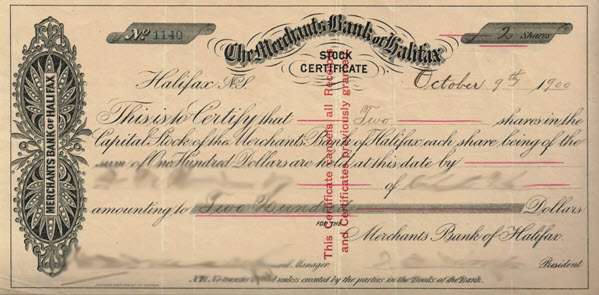 No 1140
The Merchants Bank of Halifax
2 Shares
STOCK
CERTIFICATE
Halifax N.S. October 9th 1900
This is to Certify that Two shares in the
Capital Stock of the Merchants Bank of Halifax each share being of the
sum of One Hundred Dollars are held at this date by
of
amounting to Two Hundred Dollars
FOR THE
Merchants Bank of Halifax.
Manager President
N.B. No transfer unless executed by the parties in the Books of the Bank.
MERCHANTS BANK OF HALIFAX
This Certificate cancels all Receipts
and Certificates previously granted